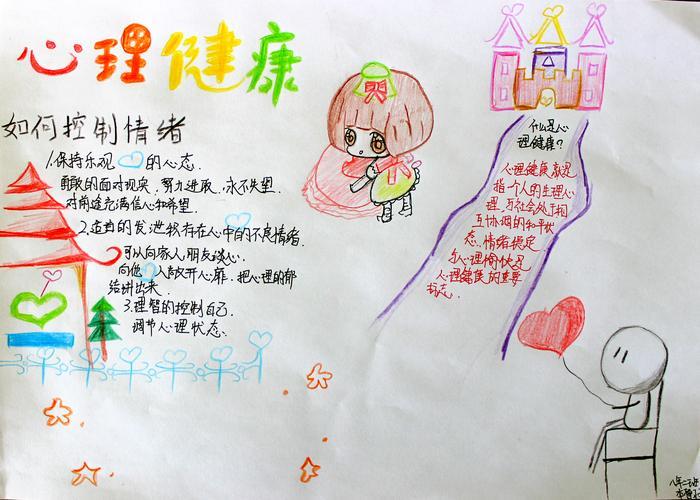 心理健康
如何控制情绪
1.保持乐观的心态.
勇敢的面对现实,努力进取,永不失望.
对前途充满信心和希望.
2.适当的发泄积存在心中的不良情绪.
可以向家人朋友谈心.
向他人放开心扉,把心理的郁
结讲出来.
3.理智的控制自己.
调节心理状态.
什么是心
理健康?
心理健康就是
指个人的生理心
理,与社会处于相
互协调的和平状
态.情绪稳定
与心理愉快是
心理健康的重要
标志.